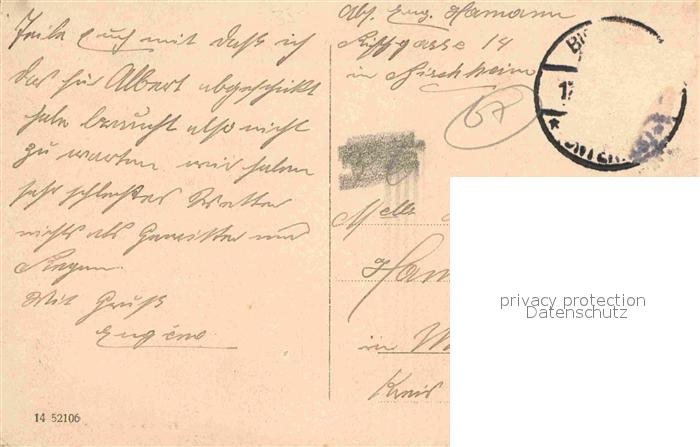 Teile Euch mit daß ich
das für Albert abgeschickt
habe braucht also nicht
zu warten wir haben
sehr schlechtes Wetter
nichts als Gewitter und
Regen.
Mit Gruß
Eugène
14 52106
Abs. Eug. Hamann
gasse 14
in Bischheim
67
Melle
Ham
in W
Kreis
privacy protection
Datenschutz